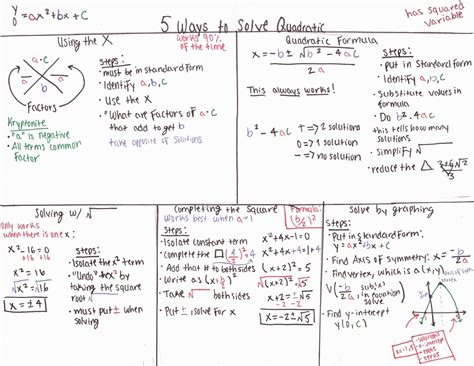 y
0 = ax²+bx+c
5 Ways to Solve Quadratic
has squared
variable
Using the X
Works 90%
of the time
a·c
b
Factors
Kryptonite
• "a" is negative
• All terms common
Factor
steps:
• must be in standard form
• Identify a,b,c
• Use the X
• "What are factors of a·c
that add to get b
take opposite of solutions
Quadratic Formula
x = -b ± √b² - 4ac
2a
This always works!
b² - 4ac
+ => 2 solutions
0 => 1 solution
- => no solution
steps:
• put in Standard Form
• Identify a,b,c
• Substitute values in
formula
• Do b²-4ac
this tells how many
solutions
• simplify √
• reduce the
Solving w/ √
only works
when there is one x:
x²-16=0
+16 +16
x² = 16
√x² = √16
x = ±4
steps:
• Isolate the x² term
• "Undo" the x² by
taking the square
root √
• must put ± when
solving
Completing the Square
Works best when a=1
Formula:
(b/2)²
steps:
• Isolate constant term
• Complete the
• Add that # to both sides
• Write as (x+b/2)²
• Take √ both sides
• Put ±, solve for x
x²+4x-1=0
x²+4x+4=1+4
(x+2)²=5
√(x+2)²=√5
x+2=±√5
-2 -2
x=-2±√5
Solve by graphing
steps:
• Put in Standard Form:
y=ax²+bx+c
• Find Axis of Symmetry: x = -b/2a
• Find vertex, which is a (x,y)
• Find y-intercept
y(0,c)